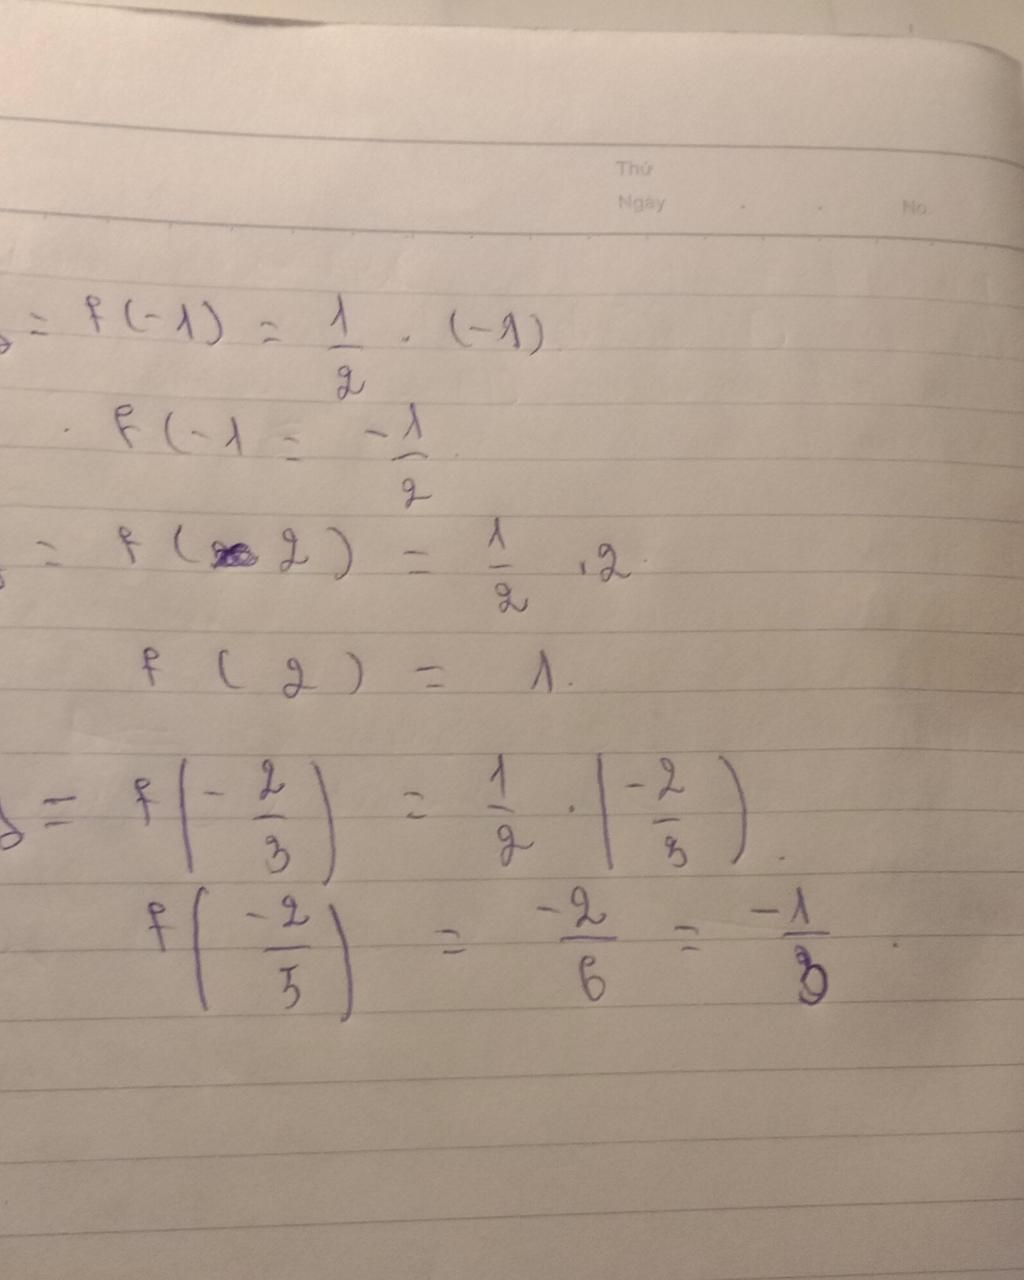 Thứ
Ngày . . No.
= f(-1) = 1/2 . (-1)
f(-1 = -1/2
= f( 2) = 1/2 .2
f ( 2 ) = 1.
y = f(- 2/3) = 1/2 . (-2/3).
f(-2/5) = -2/6 = -1/3.